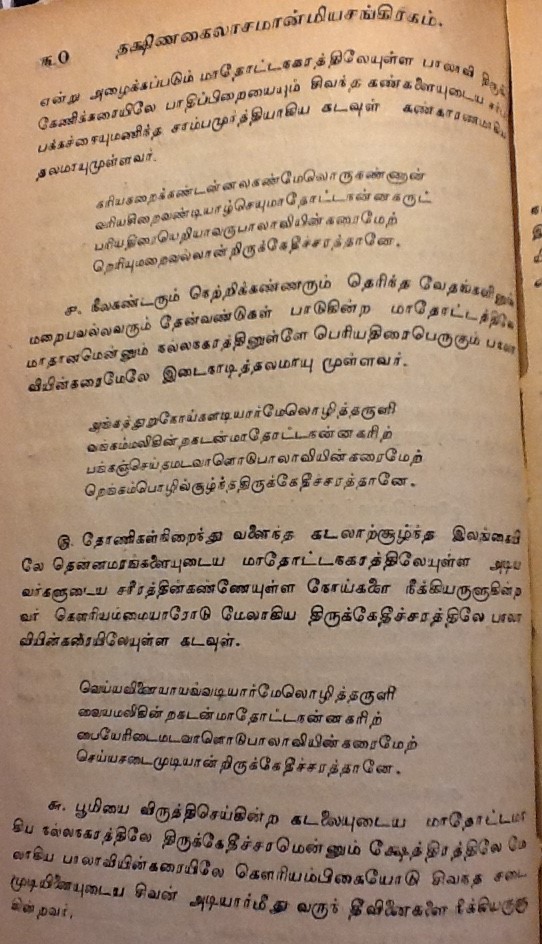 ௬0 தக்ஷிணகைலாசமான்மியசங்கிரகம்.
என்று அழைக்கப்படும் மாதோட்டநகரத்திலேயுள்ள பாலாவி
கேணிக்கரையிலே பாதிப்பிறையையும் சிவந்த கண்களையுடைய
பக்கச்சையுமணிந்த சாம்பமூர்த்தியாகிய கடவுள் கண்காரணமாகிய
தலமாயுமுள்ளவர்.
கரியகறைக்கண்டன்னலகண்மேலொருகண்ணான்
வரியசிறைவண்டியாழ்செயுமாதோட்டநன்னகருட்
பரியதிரையெறியாவருபாலாவியின்கரைமேற்
றெரியுமறைவல்லான்றிருக்கேதீச்சரத்தானே.
௪. நீலகண்டரும் நெற்றிக்கண்ணரும் தெரிந்த வேதங்களினும்
மறைபவல்லவரும் தேன்வண்டுகள் பாடுகின்ற மாதோட்டத்திலே
மாதானமென்னும் நல்லநகரத்தினுள்ளே பெரியதிரைபெருகும் பாலா
வியின்கரைமேலே இடைநாடித்தலமாயு முள்ளவர்.
அங்கத்துறுநோய்களடியார்மேலொழித்தருளி
வங்கம்மலிகின்றகடன்மாதோட்டநன்னகரிற்
பங்கஞ்செய்தமடவாளொடுபாலாவியின்கரைமேற்
றெங்கம்பொழில்சூழ்ந்ததிருக்கேதீச்சரத்தானே.
௫. தோணிகள்நிறைந்து வளைந்த கடலாற்சூழ்ந்த இலங்கையி
லே தென்னமரங்களையுடைய மாதோட்டநகரத்திலேயுள்ள அடிய
வர்களுடைய சரீரத்தின்கண்ணேயுள்ள நோய்களை நீக்கியருளுகின்ற
வர் கௌரியம்மையாரோடு மேலாகிய திருக்கேதீச்சரத்திலே பாலா
வியின்கரையிலேயுள்ள கடவுள்.
வெய்யவினையாயவ்வடியார்மேலொழித்தருளி
வையமலிகின்றகடன்மாதோட்டநன்னகரிற்
பையேரிடைமடவாளொடுபாலாவியின்கரைமேற்
செய்யசடைமுடியான்றிருக்கேதீச்சரத்தானே.
௬. பூமியை விருத்திசெய்கின்ற கடலையுடைய மாதோட்டமா
கிய நல்லநகரத்திலே திருக்கேதீச்சரமென்னும் க்ஷேத்திரத்திலே மே
லாகிய பாலாவியின்கரையிலே கௌரியம்பிகையோடு சிவந்த சடை
முடியினையுடைய சிவன் அடியார்மீது வருந் தீவினைகளை நீக்கியருளு
கின்றவர்.